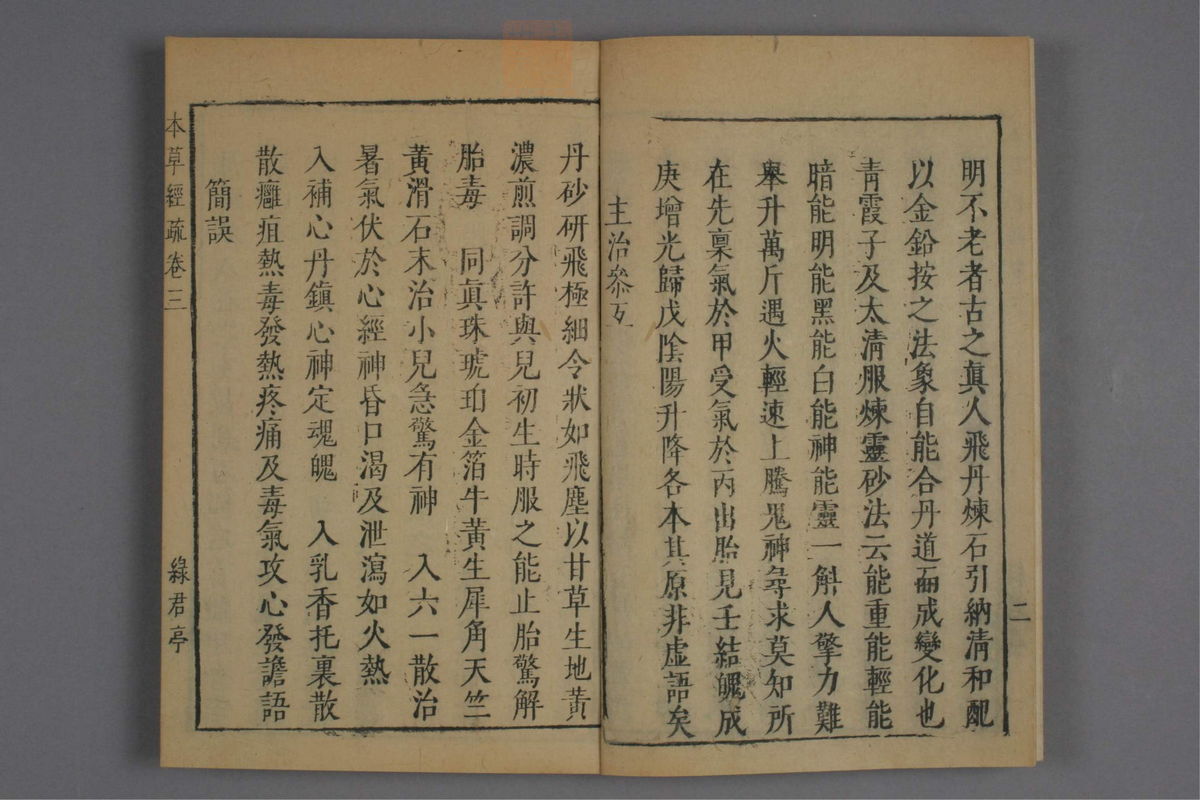 明不老者古之眞人飛丹煉石引納清和配
以金鉛按之法象自能合丹道而成變化也
靑霞子及太淸服煉靈砂法云能重能輕能
暗能明能黑能白能神能靈一斛人擎力難
舉升萬斤遇火輕速上騰鬼神尋求莫知所
在先稟氣於甲受氣於丙出胎見壬結魄成
庚增光歸戊陰陽升降各本其原非虛語矣
主治參互
二
丹砂硏飛極細令狀如飛塵以甘草生地黃
濃煎調分許與兒初生時服之能止胎驚解
胎毒　同眞珠琥珀金箔牛黃生犀角天竺
黃滑石末治小兒急驚有神　入六一散治
暑氣伏於心經神昏口渴及泄瀉如火熱
入補心丹鎭心神定魂魄　入乳香托裏散
散癰疽熱毒發熱疼痛及毒氣攻心發譫語
簡誤
本草經疏卷三
綠君亭